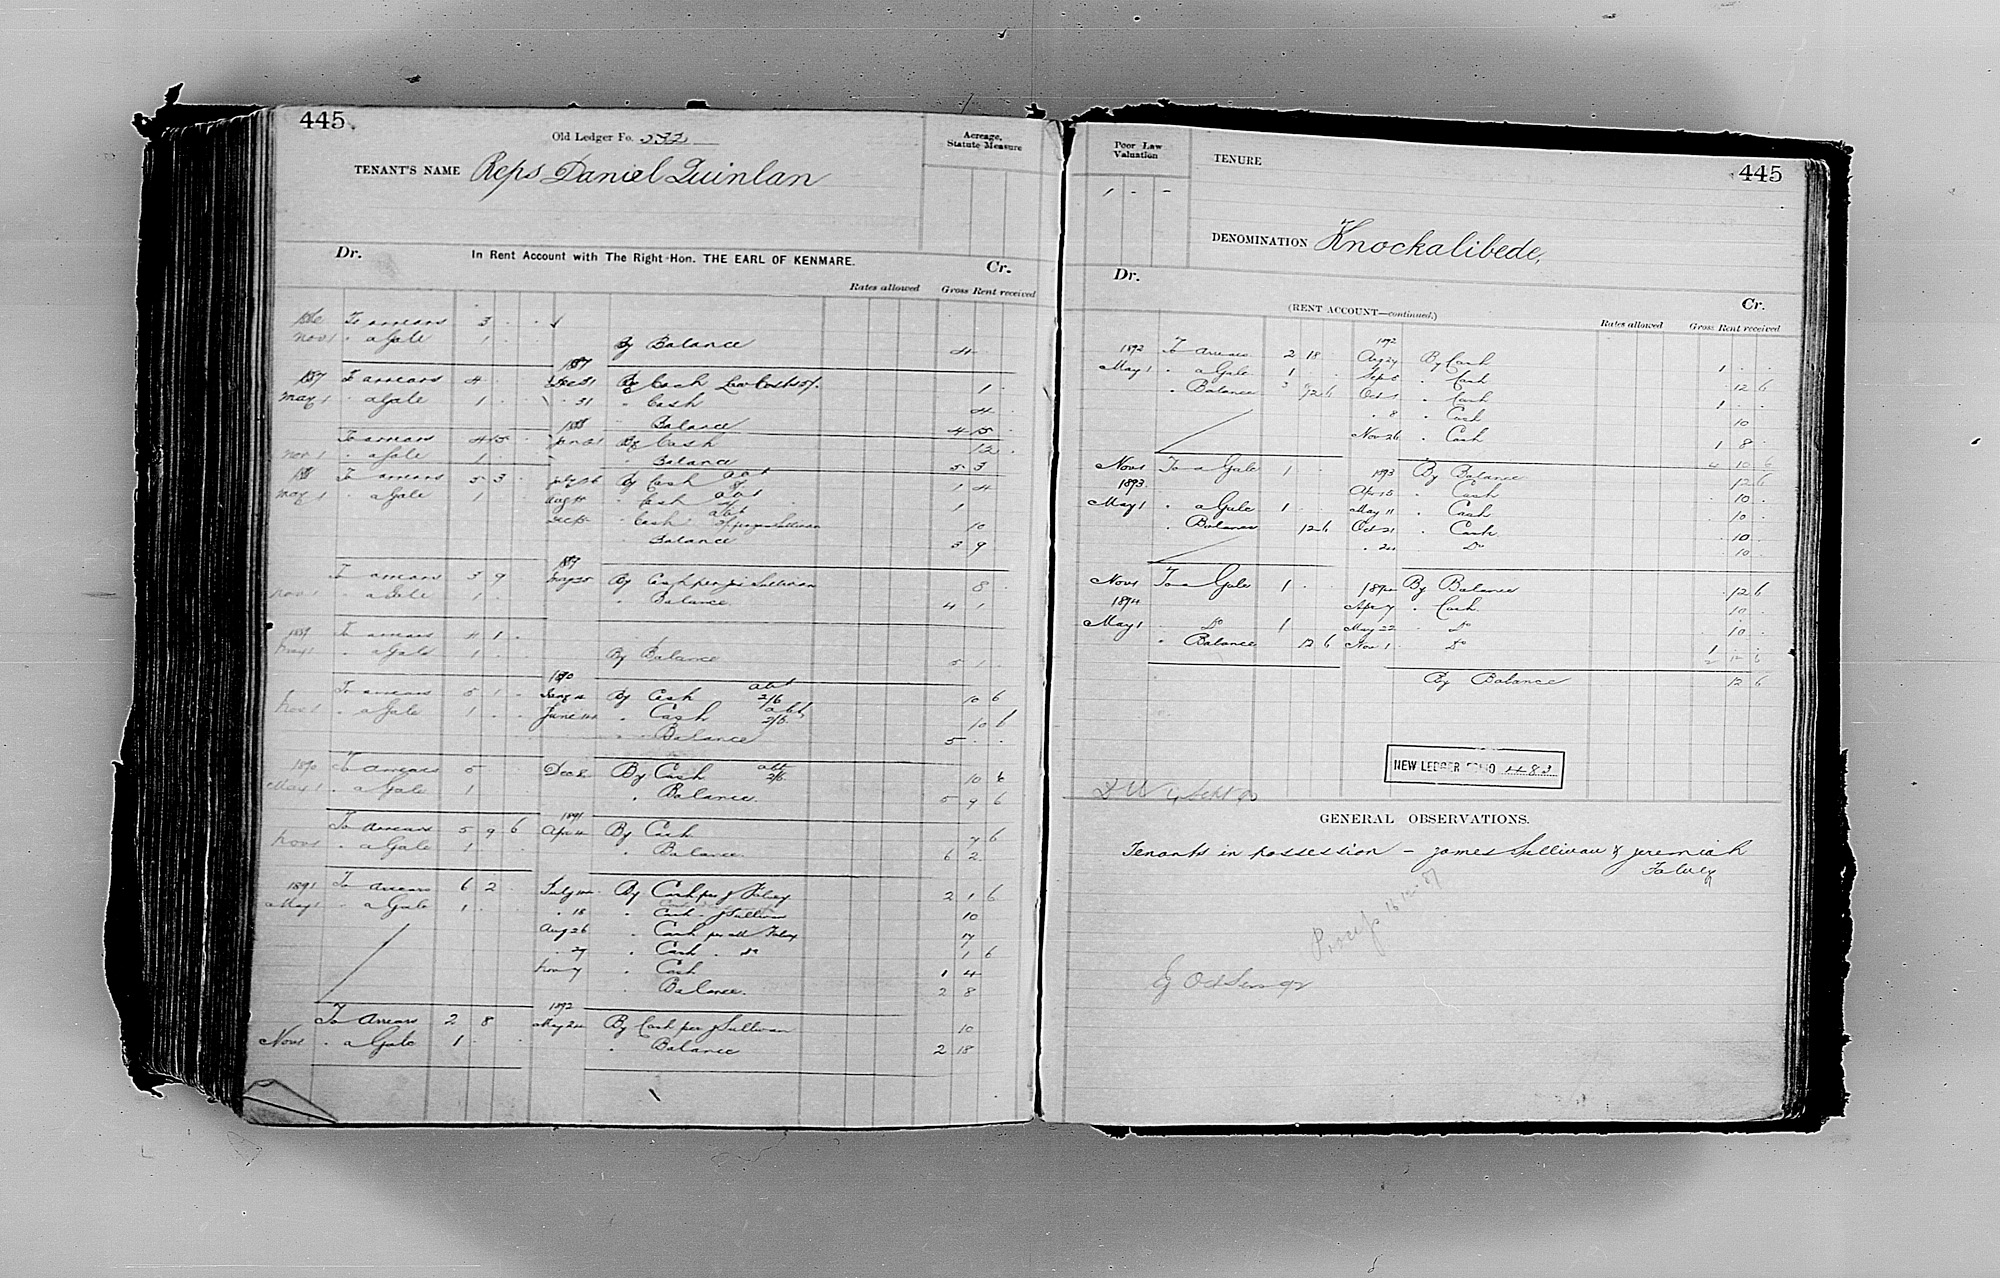 445
Old Ledger Fo. 232
Acreage, Statute Measure
TENANT'S NAME Reps Daniel Quinlan
Dr. In Rent Account with The Right Hon. THE EARL OF KENMARE. Cr.
Rates allowed Gross Rent received
To arrears 3 . .
Nov 1 " a Gale 1 . . By Balance 4
1887
1887 To arrears 4 . . Dec 31 By Cash Law Costs 1 .
May 1 " a Gale 1 . . " 31 " Cash 4 .
1888 " Balance 4 15 .
To arrears 4 15 . By Cash 12 .
Nov 1 " a Gale 1 . . " Balance 5 3
1888 To arrears 5 3 By Cash abt 1 4
May 1 " a Gale 1 . Aug " Cash abt 1
" Cash abt Sullivan 10
Balance 3 9
1889
To arrears 3 9 By Cash per Sullivan 8 .
Nov 1 " a Gale 1 . " Balance 4 1
1889 To arrears 4 1 .
May 1 " a Gale 1 . . By Balance 5 1 .
1890
To arrears 5 1 . By Cash abt 2/6 10 6
Nov 1 " a Gale 1 . . June " Cash abt 2/6 10 6
" Balance 5 . .
1890 To arrears 5 Dec By Cash abt 2/6 10 6
May 1 " a Gale 1 " Balance 5 9 6
1891
To Arrears 5 9 6 Apr By Cash 7 6
Nov 1 " a Gale 1 . . " Balance 6 2
1891 To Arrears 6 2 . July By Cash per J Falvey 2 1 6
May 1 " a Gale 1 . . " 18 " Cash J Sullivan 10
Aug 26 " Cash per Falvey 7
" 27 " Cash " Do 1 6
Nov 7 " Cash 1 4
" Balance. 2 8
1892
To Arrears 2 8 May 24 By Cash per J Sullivan 10
Nov 1 " a Gale 1 . . " Balance 2 18
Poor Law Valuation
1 - -
TENURE
445
DENOMINATION Knockalibede,
Dr. Cr.
(RENT ACCOUNT—continued.)
Rates allowed Gross Rent received
1892
1892 To Arrears 2 18 Aug 24 By Cash 1 . .
May 1 " a Gale 1 . Sep " Cash 12 6
" Balance 12 6 Oct 1 " Cash 1 . .
" 8 " Cash 10
Nov 26 " Cash 1 8 .
4 10 6
Nov 1 To a Gale 1 . . 1893 By Balance 12 6
1893 Apr 15 " Cash 10 .
May 1 " a Gale 1 . . May 11 " Cash 10 .
" Balance 12 6 Oct 21 " Cash 10 .
" 24 Do 10 .
Nov 1 To a Gale 1 . . 1894 By Balance 12 6
1894 Apr 7 " Cash 10 .
May 1 " Do 1 May 22 " Do 10 .
" Balance 12 6 Nov 1 " Do 1 . .
2 12 6
By Balance 12 6
NEW LEDGER FOLIO 483
GENERAL OBSERVATIONS.
Tenants in possession - James Sullivan & Jeremiah
Falvey